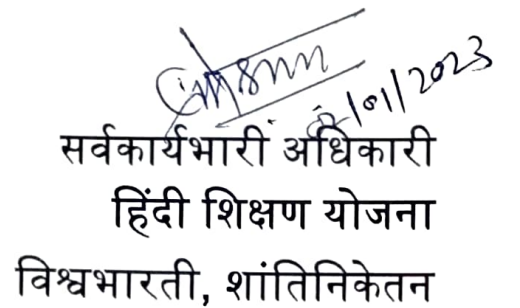 /01/2023
सर्वकार्यभारी अधिकारी
हिंदी शिक्षण योजना
विश्वभारती, शांतिनिकेतन